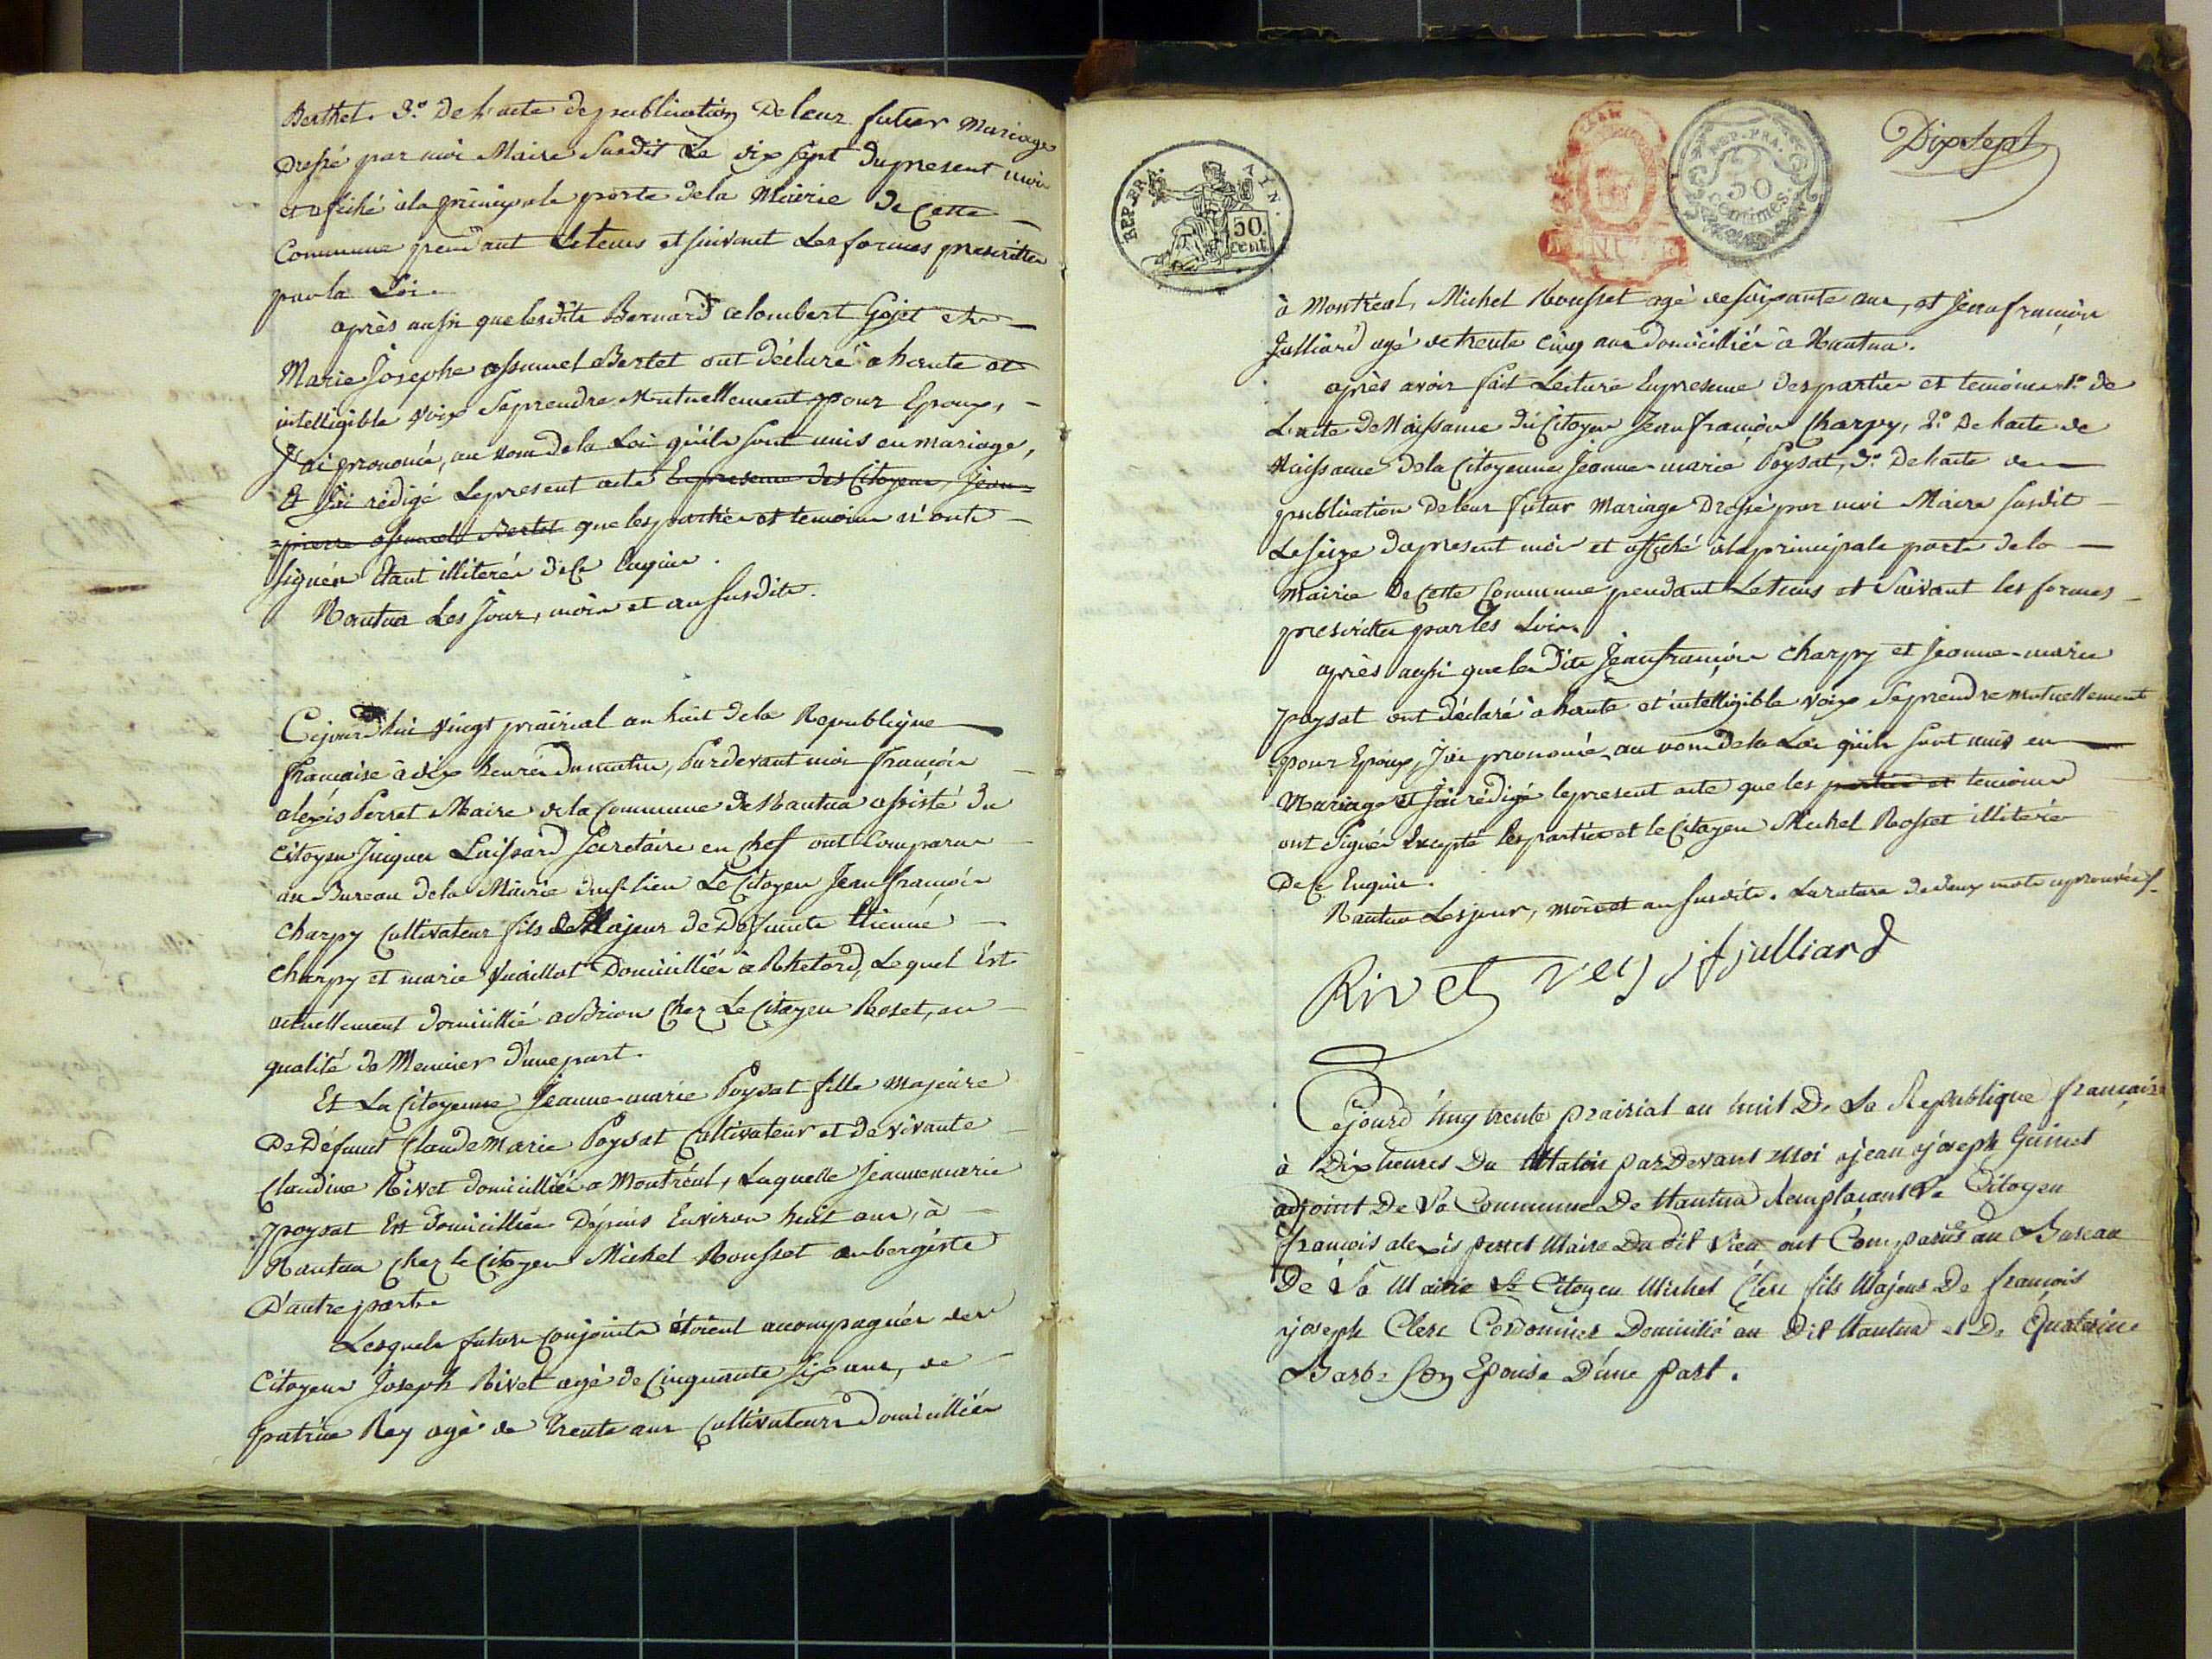 Berthet. 3.º De l'acte de publication De leur futur Mariage
Dressé par moi Maire Susdit Le dix sept du present mois
et affiché à la principale porte de la Mairie De Cette
Commune pendant Le tems et suivant Les formes prescrittes
par la Loi.
après aussi que lesdits Bernard Gojet et
Marie Josephe Bertet ont déclaré à haute et
intelligible voix Se prendre Mutuellement pour Epoux,
J'ai prononcé, au nom de la Loi qu'ils sont unis en mariage,
Et J'ai rédigé Le present acte En presence des Citoyens Jean=
=pierre Bertet que les parties et temoins n'ont
signés étant illiterés de Ce Enquis.
Nantua Les Jour, mois et an susdits.
Cejourd'hui vingt prairial an huit de la Republique
française à dix heures du matin, Pardevant moi françois
alexis Perret Maire de la Commune De Nantua assisté du
citoyen Jacques Secretaire en Chef ont Comparus
au Bureau de la Mairie dud. lieu Le Citoyen Jean françois
Charpy Cultivateur fils Majeur de Defunts Etienne
Charpy et marie Domicilliés à, Lequel Est
actuellement domicillié à Brion Chez Le Citoyen Roset, en
qualité de Meunier d'une part.
Et La Citoyenne Jeanne-marie Poysat fille majeure
De Défunt Claude Marie Poysat Cultivateur et de vivante
Claudine Rivet domicilliés a Montréal, Laquelle Jeanne marie
poysat Est domicilliée Dépuis Environ huit ans, à
Nantua Chez le Citoyen Michel Rousset aubergiste
D'autre part.
Lesquels futurs Conjoints étoient acompagnés des
Citoyens Joseph Rivet agé de Cinquante six ans, de
patrice Rey agé de trente ans Cultivateurs domicilliés
REP. FRA. AIN.
50 cent.
REP. FRA.
50 centimes.
Dix sept
à Montréal, Michel Rousset agé de soixante ans, et Jean françois
Julliard agé de trente cinq ans domicilliés à Nantua.
après avoir fait Lecture En presence des parties et temoins 1.º de
L'acte De Naissance du Citoyen Jean françois Charpy, 2.º De l'acte de
Naissance de la Citoyenne Jeanne-marie Poysat, 3.º De l'acte de
publication De leur futur Mariage Dressé par moi Maire susdit
Le seize du present mois et affiché à la principale porte de la
Mairie De Cette Commune pendant Le tems et Suivant les formes
prescrittes par les Loix.
après aussi que lesdits Jean françois Charpy et Jeanne-marie
poysat ont déclaré à haute et intelligible voix Se prendre mutuellement
pour Epoux, J'ai prononcé au nom de la Loi qu'ils sont unis en
Mariage et J'ai rédigé le present acte que les parties et temoins
ont Signés Excepté les parties et le Citoyen Michel Rosset illiterés
De Ce Enquis.
Nantua Les jour, mois et an susdits. La rature de deux mots aprouvée
Rivet rey jf julliard
Cejourd'huy trente prairial an huit De La Republique française
à Dix heures Du Matin par Devant Moi jean joseph Guinet
adjoint De La Commune De Nantua Remplaçant Le Citoyen
françois alexis perret Maire Du dit lieu ont Comparus au Bureau
De La Mairie Le Citoyen Michel Clerc fils Majeur De françois
joseph Clerc Cordonnier Domicilié au Dit Nantua et De
Barbe Son Epouse D'une part.